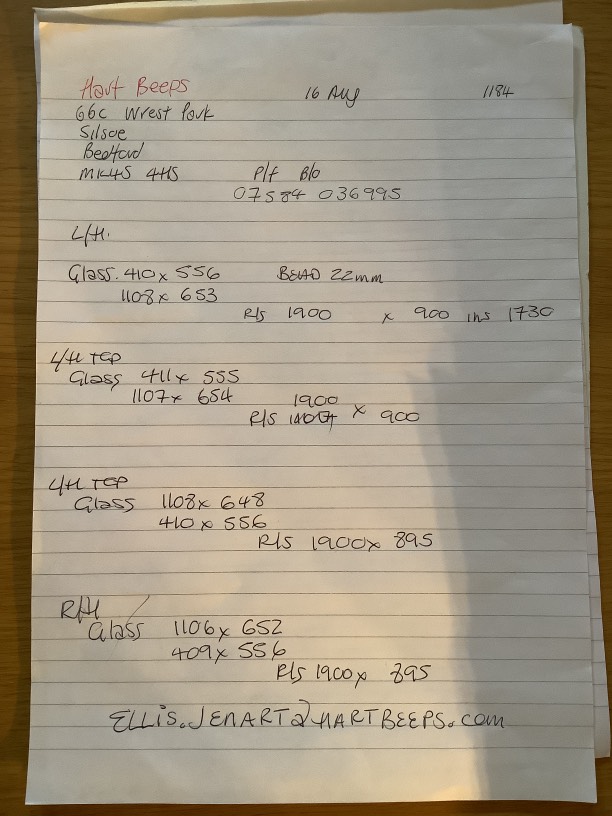 Hart Beeps 16 Aug 1184
G6c Wrest Park
Silsoe
Bedford
MK45 4HS P/f B/o
07584 036995
L/H.
Glass. 410 x 556 BEAD 22mm
1108 x 653
R/S 1900 x 900 ins 1730
L/H TOP
Glass 411 x 555
1107 x 654 1900
R/S x 900
L/H TOP
Glass 1108 x 648
410 x 556
R/S 1900 x 895
R/H
Glass 1106 x 652
409 x 556
R/S 1900 x 895
ELLIS.JENART@HARTBEEPS.com